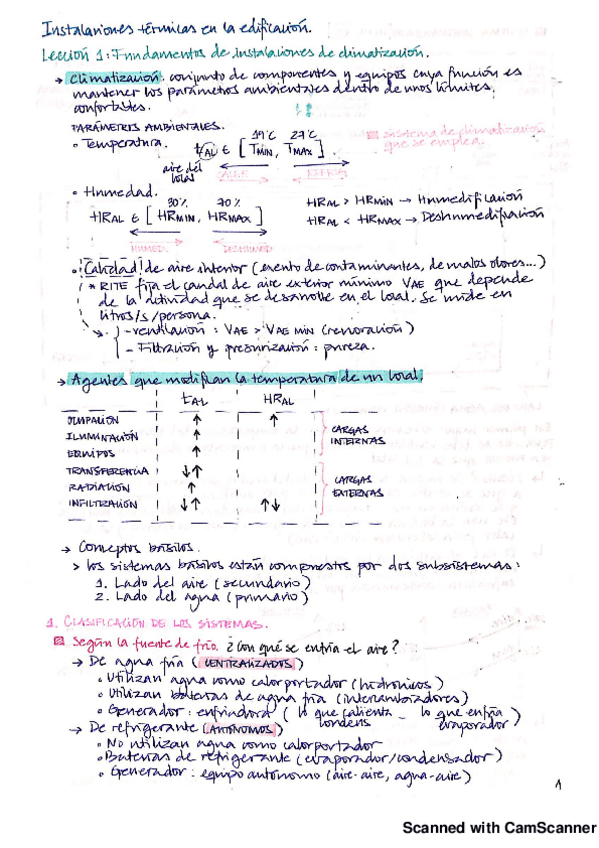 Instalaciones térmicas en la edificación.
Lección 1: Fundamentos de instalaciones de climatización.
→ Climatización: conjunto de componentes y equipos cuya función es
mantener los parámetros ambientales dentro de unos límites
confortables.
PARÁMETROS AMBIENTALES.
19ºC 27ºC
• Temperatura. tAL ∈ [TMIN, TMAX].
sistema de climatización
que se emplea.
aire del
local
CALEF. REFRIG.
• Humedad.
30% 70%
HRAL ∈ [HRMIN, HRMAX]
HRAL > HRMIN → Humedificación
HRAL < HRMAX → Deshumedificación
HUMED. DESHUMED
• Calidad de aire interior (exento de contaminantes, de malos olores...)
* RITE fija el caudal de aire exterior mínimo VAE que depende
de la actividad que se desarrolle en el local. Se mide en
litros/s/persona.
- ventilación: VAE > VAE MIN (renovación)
- Filtración y presurización: pureza.
→ Agentes que modifican la temperatura de un local.
tAL HRAL
OCUPACIÓN ↑ ↑
ILUMINACIÓN ↑
EQUIPOS ↑
CARGAS
INTERNAS
TRANSFERENCIA ↓↑
RADIACIÓN ↑
INFILTRACIÓN ↓↑ ↑↓
CARGAS
EXTERNAS
→ Conceptos básicos.
> los sistemas básicos están compuestos por dos subsistemas:
1. Lado del aire (secundario)
2. Lado del agua (primario)
1. CLASIFICACIÓN DE LOS SISTEMAS.
Según la fuente de frío. ¿Con qué se enfría el aire?
→ De agua fría (CENTRALIZADOS)
• Utilizan agua como calorportador (hidrónicos)
• Utilizan baterías de agua fría (intercambiadores)
• Generador: enfriadora (lo que calienta - lo que enfría)
condens evaporador
→ De refrigerante (AUTÓNOMOS)
• No utilizan agua como calorportador
• Baterías de refrigerante (evaporador/condensador)
• Generador: equipo autónomo (aire-aire, agua-aire)
1
Scanned with CamScanner